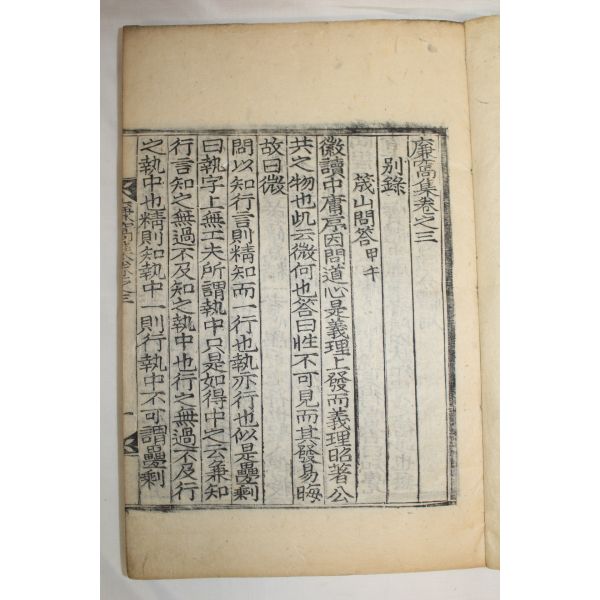 廉窩集卷之三
別錄
箴山問答 甲午
徽讀中庸序因問道心是義理上發而義理昭著公
共之物也此云微何也答曰性不可見而其發易晦
故曰微
問以知行言則精知而一行也執亦行也似是疊剩
曰執字上無工夫所謂執中只是如得中之云兼知
行言知之無過不及知之執中也行之無過不及行
之執中也精則知執中一則行執中不可謂疊剩
廉窩集卷之三
一